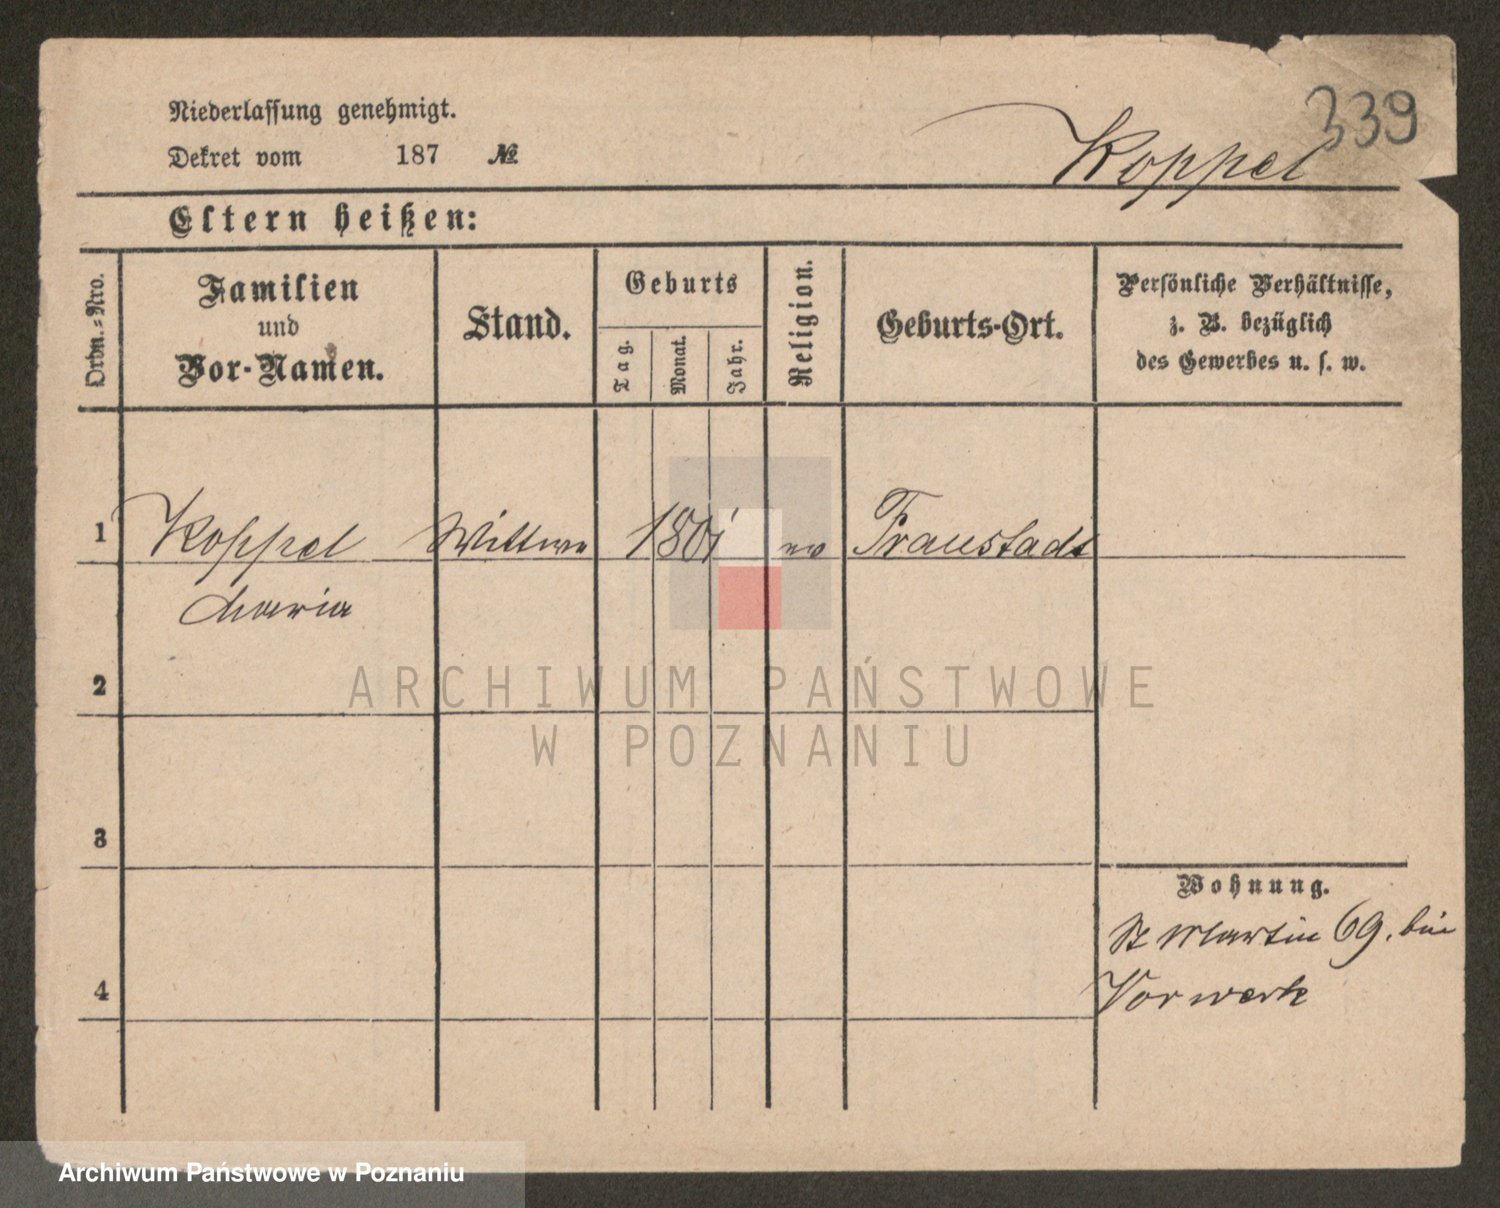 339
Niederlassung genehmigt.
Koppel
Dekret vom 187 №
Eltern heißen:
Ordn.=Nro.
Familien
und
Vor-Namen.
Stand.
Geburts
Tag.
Monat.
Jahr.
Religion.
Geburts-Ort.
Persönliche Verhältnisse,
z. B. bezüglich
des Gewerbes u. s. w.
1 Koppel Wittwe 1801 ev Fraustadt
Maria
2
3
Wohnung.
St Martin 69. bei
4 Vorwerk
ARCHIWUM PAŃSTWOWE
W POZNANIU
Archiwum Państwowe w Poznaniu